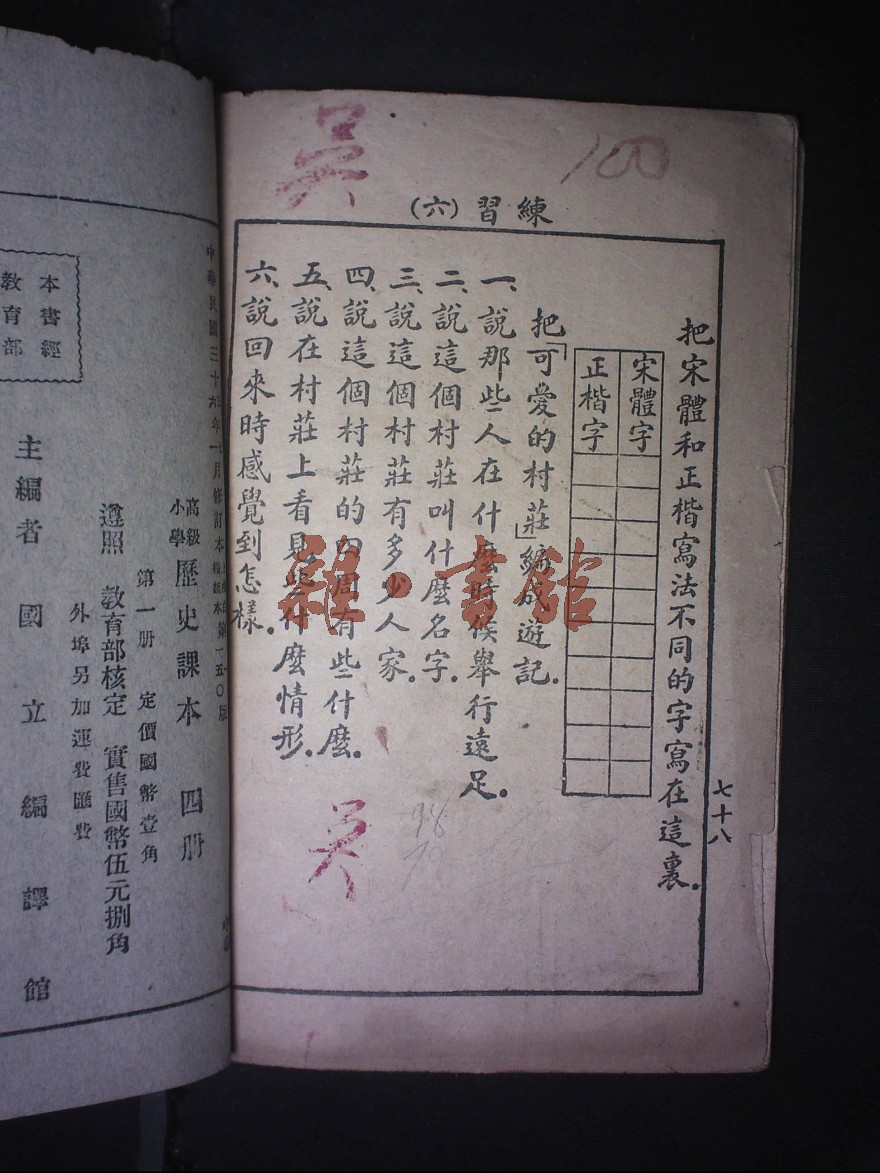 吳
100
練習(六)
把宋體和正楷寫法不同的字寫在這裏.
宋體字
正楷字
把「可愛的村莊」編成遊記.
一、說那些人在什麼時候舉行遠足.
二、說這個村莊叫什麼名字.
三、說這個村莊有多少人家.
四、說這個村莊的四周有些什麼.
五、說在村莊上看見些什麼情形.
六、說回來時感覺到怎樣.
七十八
吳
98
雜·書館
高級小學 歷史課本 四册
第一册 定價國幣壹角
遵照 教育部核定 實售國幣伍元捌角
外埠另加運費匯費
主編者 國立編譯館
本書經
教育部